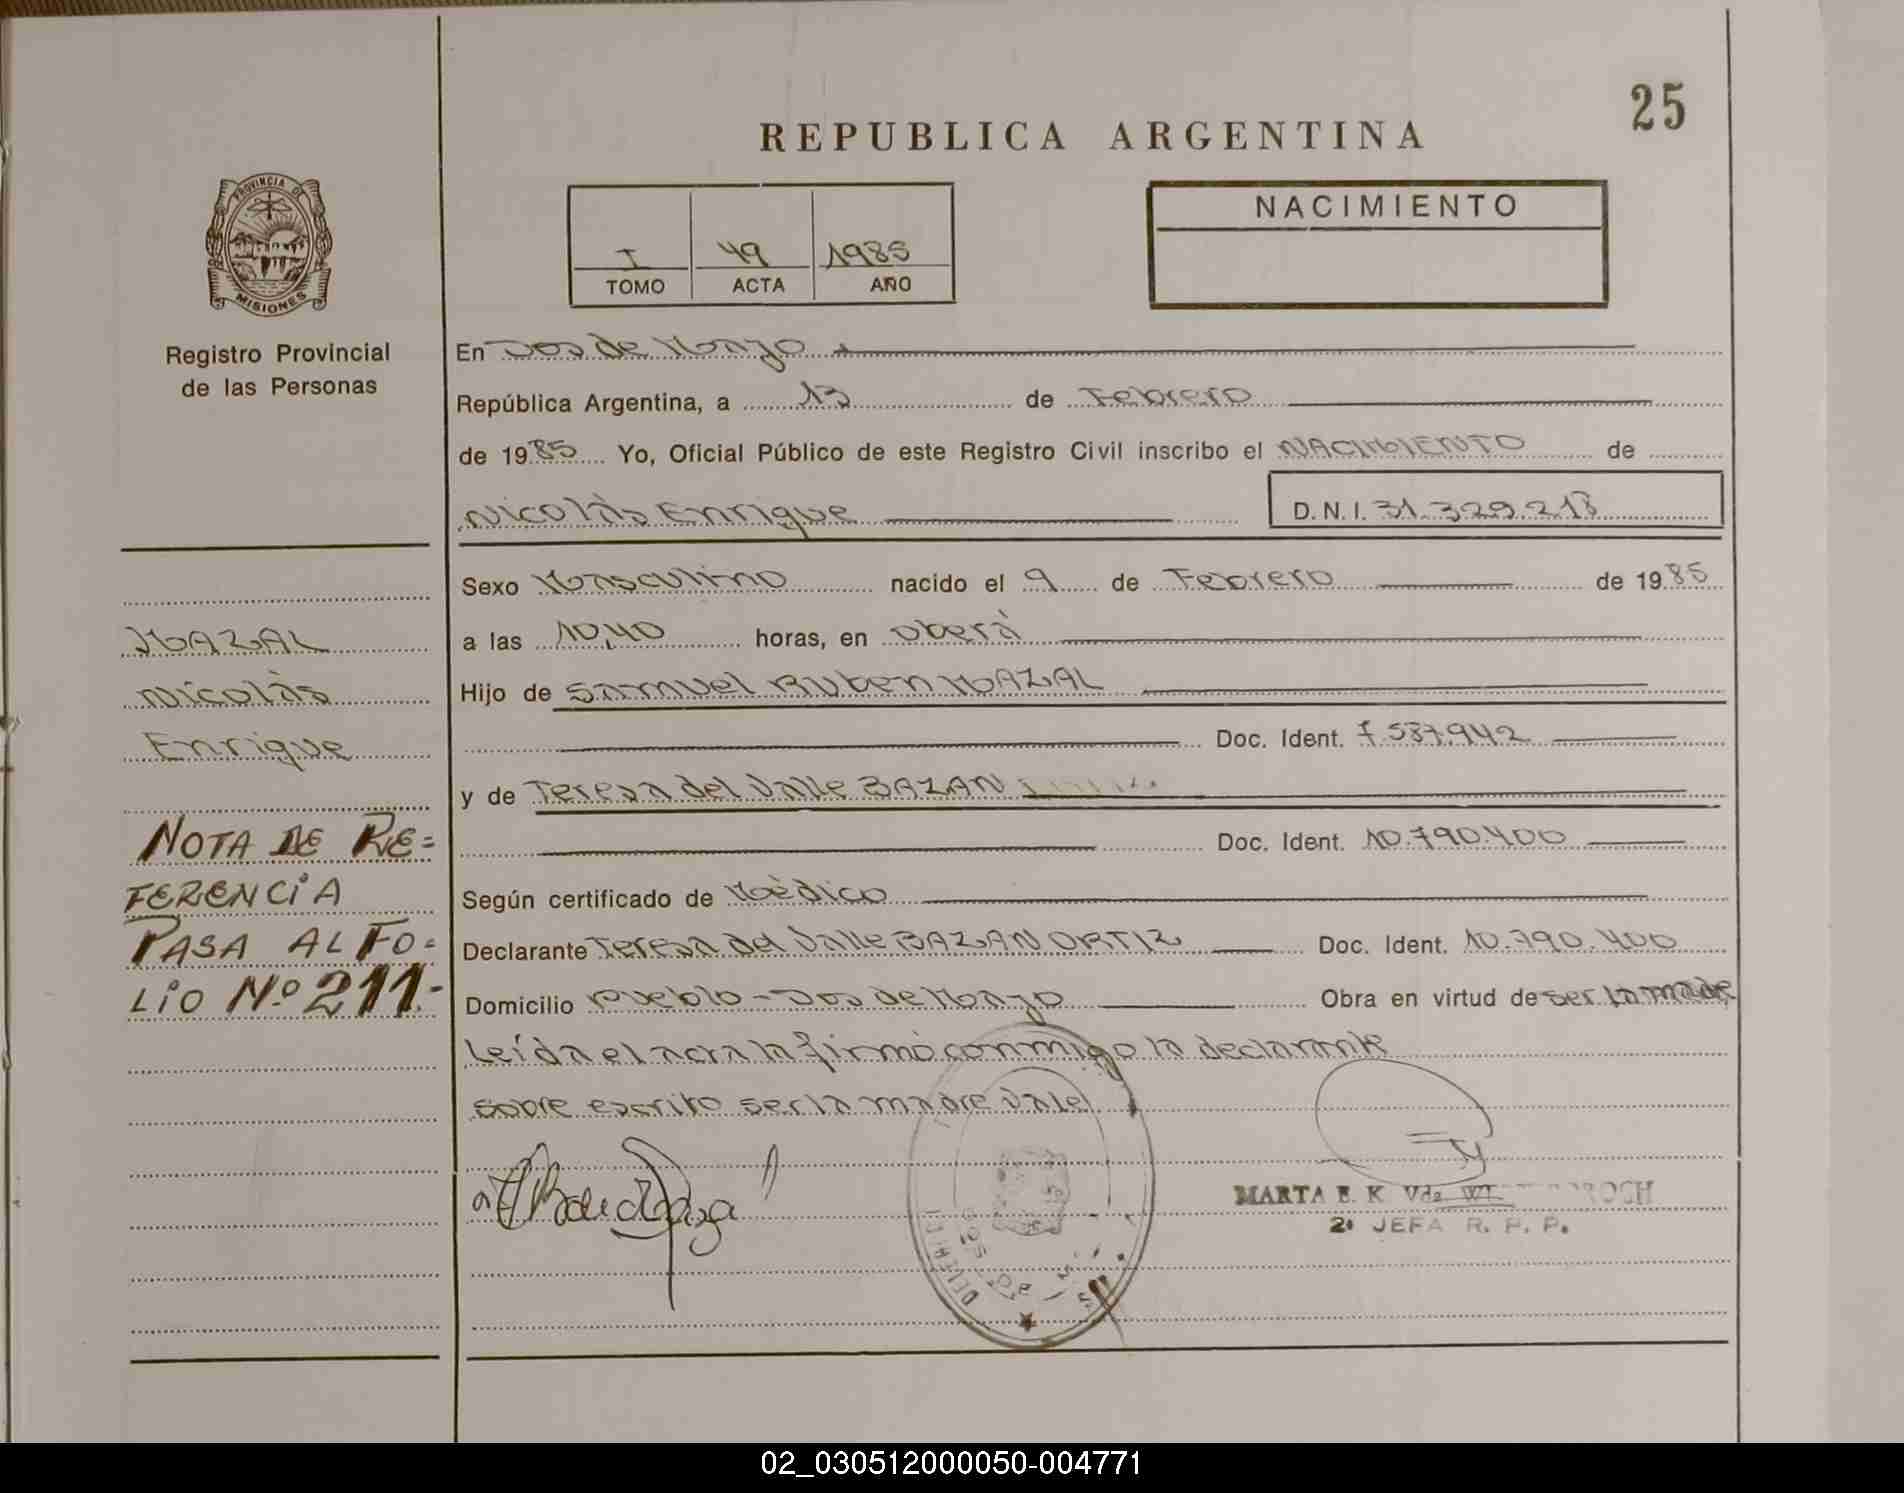 25
REPUBLICA ARGENTINA
PROVINCIA DE
MISIONES
Registro Provincial
de las Personas
I 49 1985
TOMO ACTA AÑO
NACIMIENTO
En Dos de Mayo
República Argentina, a 13 de Febrero
de 1985 Yo, Oficial Público de este Registro Civil inscribo el NACIMIENTO de
Nicolás Enrique D.N.I. 31.329.218
Sexo Masculino nacido el 9 de Febrero de 1985
a las 10,40 horas, en Oberá
Hijo de Samuel Ruben MAZAL
Doc. Ident. 7.587.942
y de Teresa del Valle BAZAN
Doc. Ident. 10.790.400
Según certificado de Médico
Declarante Teresa del Valle BAZAN ORTIZ Doc. Ident. 10.790.400
Domicilio Pueblo - Dos de Mayo Obra en virtud de ser la madre
Leída el acta la firmó conmigo la declarante
sobre escrito ser la madre vale
MAZAL
Nicolás
Enrique
NOTA DE RE=
FERENCIA
PASA AL FO=
LIO Nº 211.-
MARTA E. K. Vda
2ª JEFA R. P. P.
02_030512000050-004771